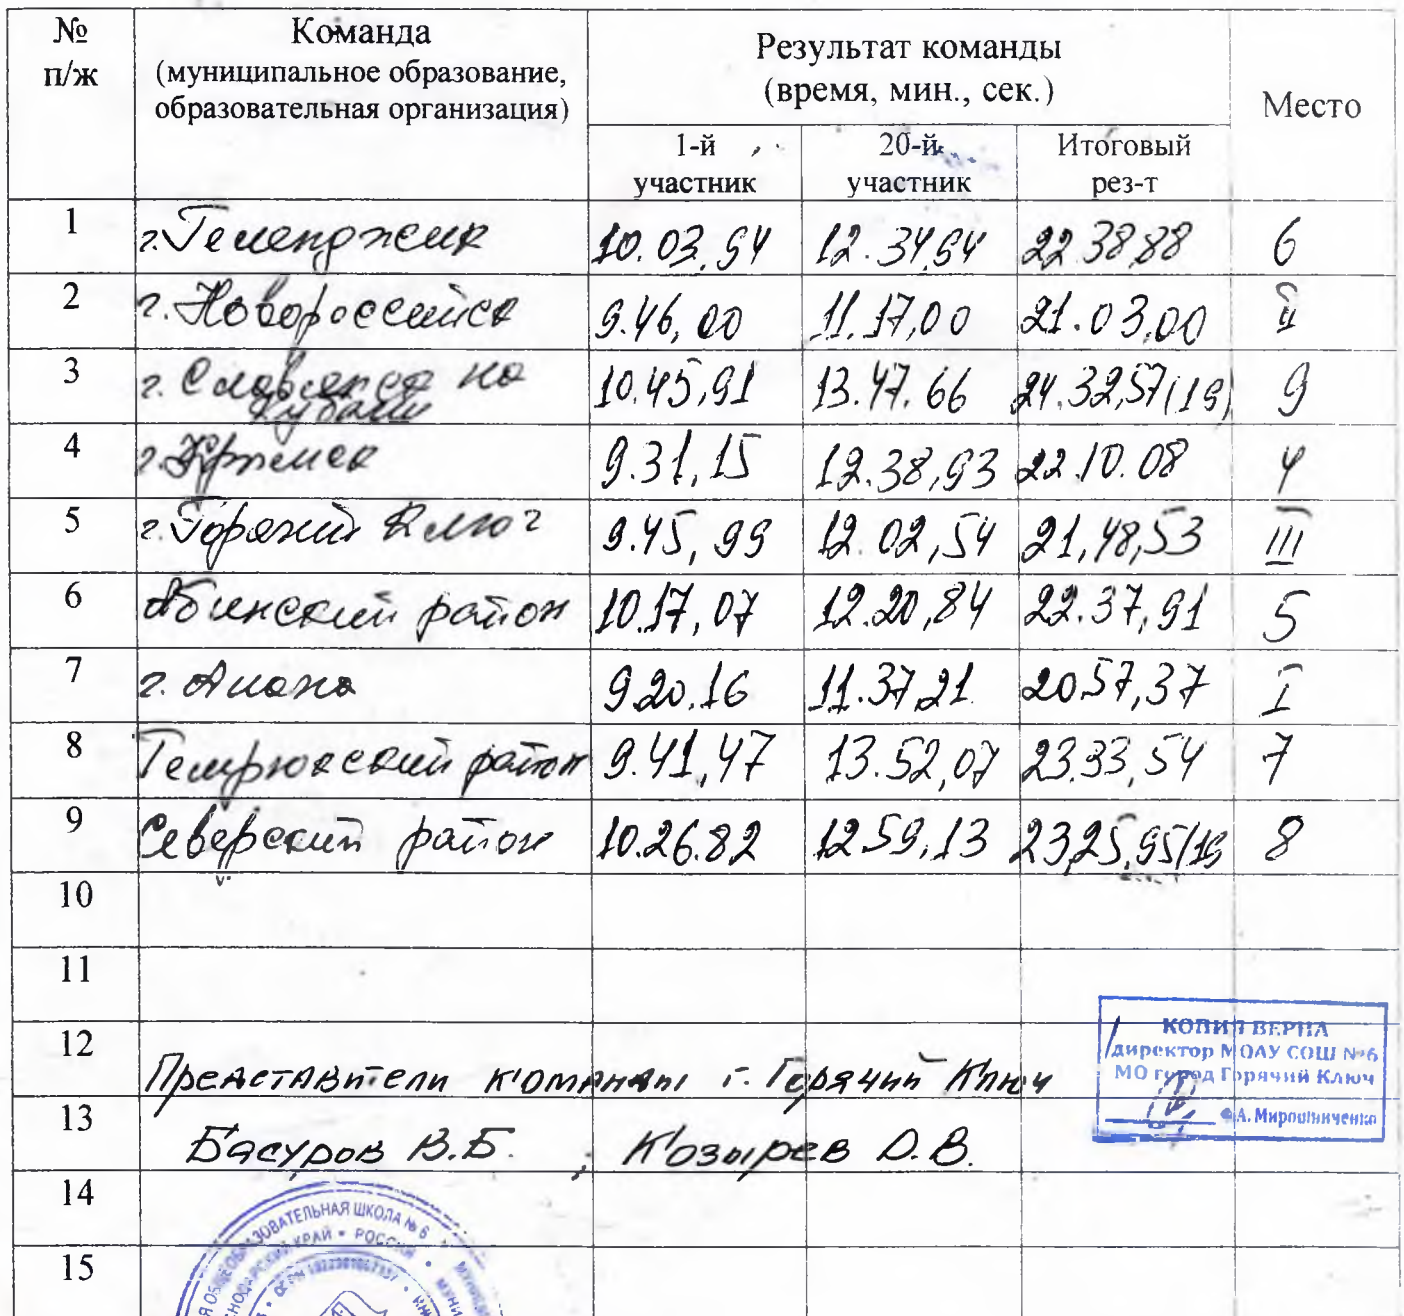 № п/ж Команда (муниципальное образование, образовательная организация) Результат команды (время, мин., сек.) Место
1-й участник 20-й участник Итоговый рез-т
1 г. Геленджик 10.03,94 12.34,94 22.38,88 6
2 г. Новороссийск 9.46,00 11.17,00 21.03,00 II
3 г. Славянск на Кубани 10.45,91 13.47.66 24.32,57(19) 9
4 г. Крымск 9.31,15 12.38,93 22.10.08 4
5 г. Горячий Ключ 9.45,99 12.02,54 21,48,53 III
6 Абинский район 10.17,07 12.20,84 22.37,91 5
7 г. Анапа 9.20.16 11.37,21 20.57,37 I
8 Темрюкский район 9.41,47 13.52,07 23.33,54 7
9 Северский район 10.26.82 12.59,13 23,25,95(19 8
10
11
12 Представители команды г. Горячий Ключ
13 Басуров В.Б. , Козырев О.В.
14
15
КОПИЯ ВЕРНА
директор МОАУ СОШ №6
МО город Горячий Ключ
А. Мирошниченко
ОБЩЕОБРАЗОВАТЕЛЬНАЯ ШКОЛА № 6
КРАЙ • РОССИЯ